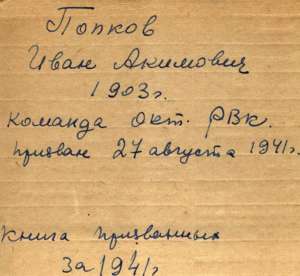 Попков
Иван Акимович
1903г.
Команда Окт. РВК.
Призван 27 августа 1941г.
Книга призванных
за 1941г